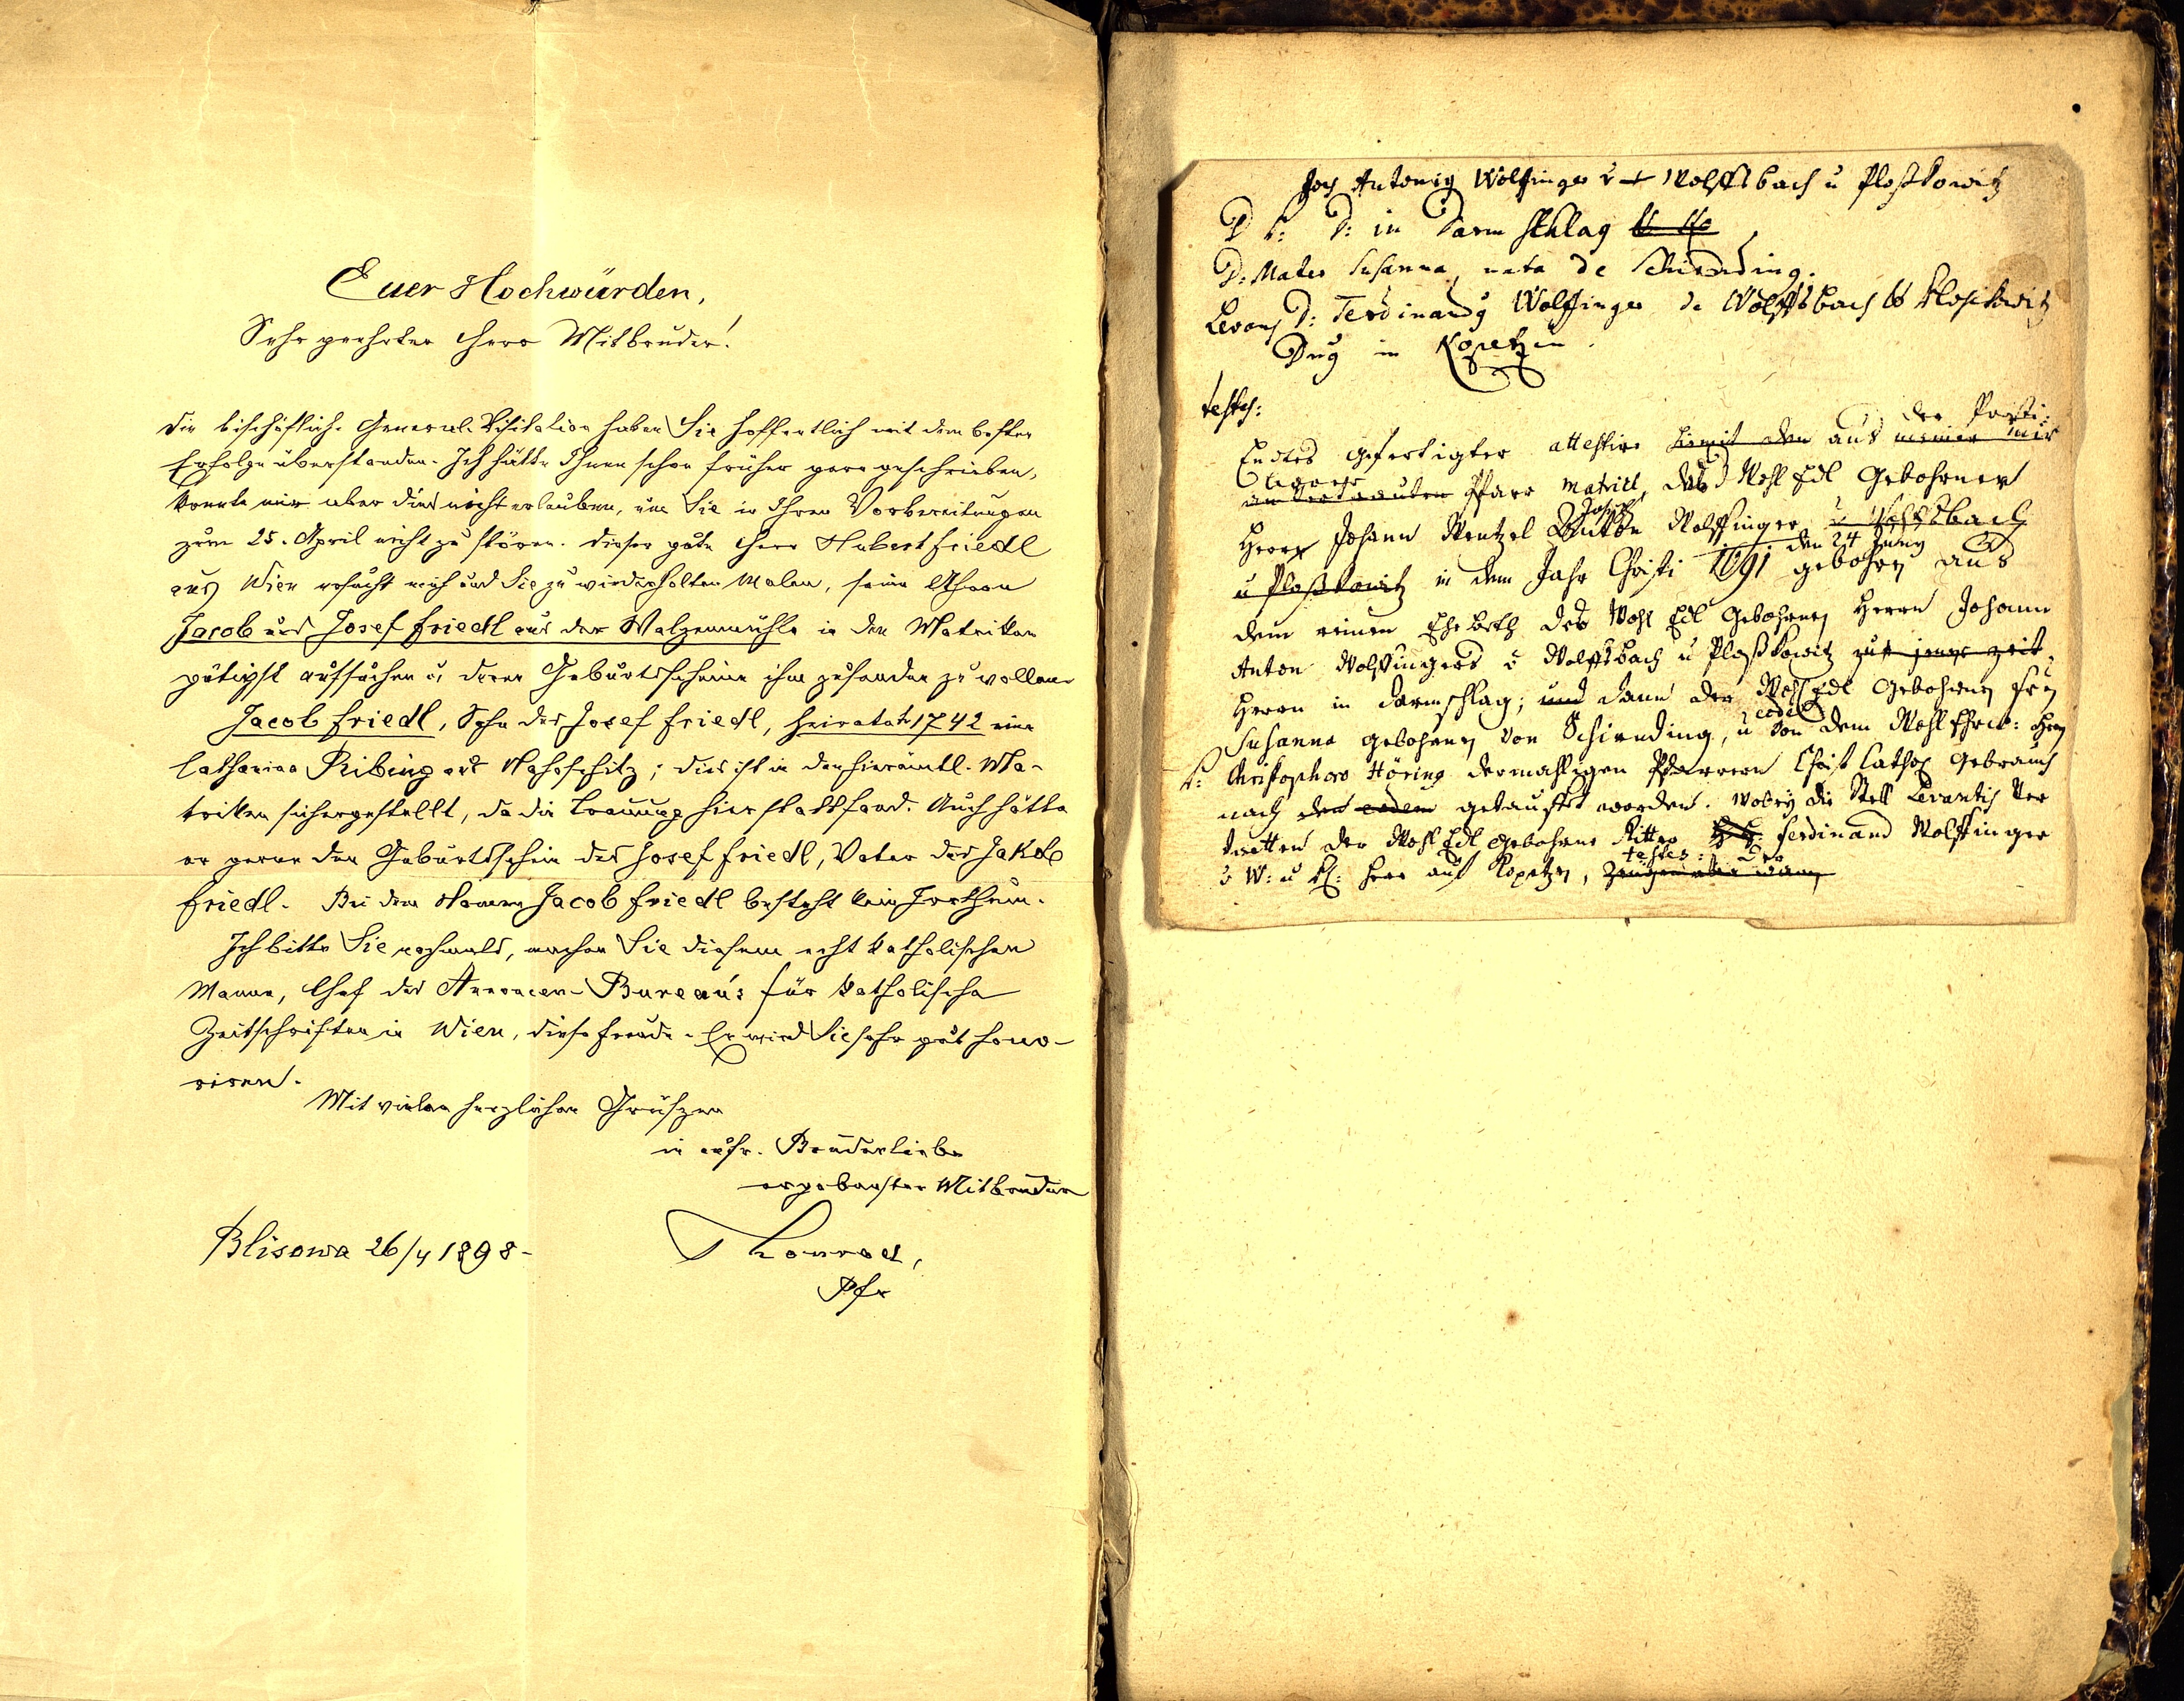 Euer Hochwürden,
Sehr geehrter Herr Mitbruder!
Die bischöflich. General-Visitation haben Sie hoffentlich mit dem besten
Erfolge überstanden. Ich hätte Ihnen schon früher gern geschrieben,
konnte mir aber dies nicht erlauben, um Sie in Ihren Vorbereitungen
zum 25. April nicht zu stören. Dieser gute Herr Hubert Friedl
aus Wien ersucht mich und Sie zu wiederholten Malen, seine Ahnen
Jacob und Josef Friedl aus der Walzenmühle in den Matriken
gütigst aufsuchen u. deren Geburtsscheine ihm zusenden zu wollen.
Jacob Friedl, Sohn des Josef Friedl, heiratete 1742 eine
Catharina Ribing aus ; dies ist in den hierämtl. Ma-
triken sichergestellt, da die Trauung hier stattfand. Auch hätte
er gerne den Geburtsschein des Josef Friedl, Vater des Jakob
Friedl. Bei dem Namen Jacob Friedl besteht kein Irrthum.
Ich bitte Sie nochmals, machen Sie diesem echt katholischen
Manne, Chef des Annoncen-Bureau's für katholische
Zeitschriften in Wien, diese Freude. Er wird Sie sehr gut hono-
riren.
Mit vielen herzlichen Grüßen
in aufr. Bruderliebe
ergebenster Mitbruder
Blisowa 26/4 1898.
Konrad,
Pfr
Antonig Wolffinger v Wolffsbach u Ploßkowitz
D: in Darmschlag
D: Mater Susanna, nata de Schirnding.
Levans D: Ferdinandg Wolffinger de Wolffsbach & Ploskowitz
Dng in Kopetzen
testes:
der Porsti:
Endes gefertigter attestire hiemit den aus meiner mir
anvertrauten Pfarr Matricl, daß d Wohl Edl Gebohrner
Joseph
Herr Johann Wentzel Anton Wolffinger v Wolffsbach
den 24 Juny
u Ploßkowitz in dem Jahr Christi 1691 gebohrn aus
dem reinen Ehebeth des Wohl Edl Gebohrnen Herrn Johann
Anton Wolffingers v Wolffsbach u Ploßkowitz zur jener zeit
Herrn in Darmschlag; und dann der Wohl Edl Gebohrnen Fru
eodem
Susanna gebohrnen von Schirnding, u von dem Wohl Ehrw: Hrn
P: Christophoro Höring dermahligen Pfarrern Christ Cathol Gebrauch
nach den eodem getaufft worden. Wobey die Stell Levantis Ver
tretten der Wohl Edl gebohrne Ritter Ferdinand Wolffinger
testes: der
v W: u Pl: Herr auf Kopetzen, Zeugen aber waren